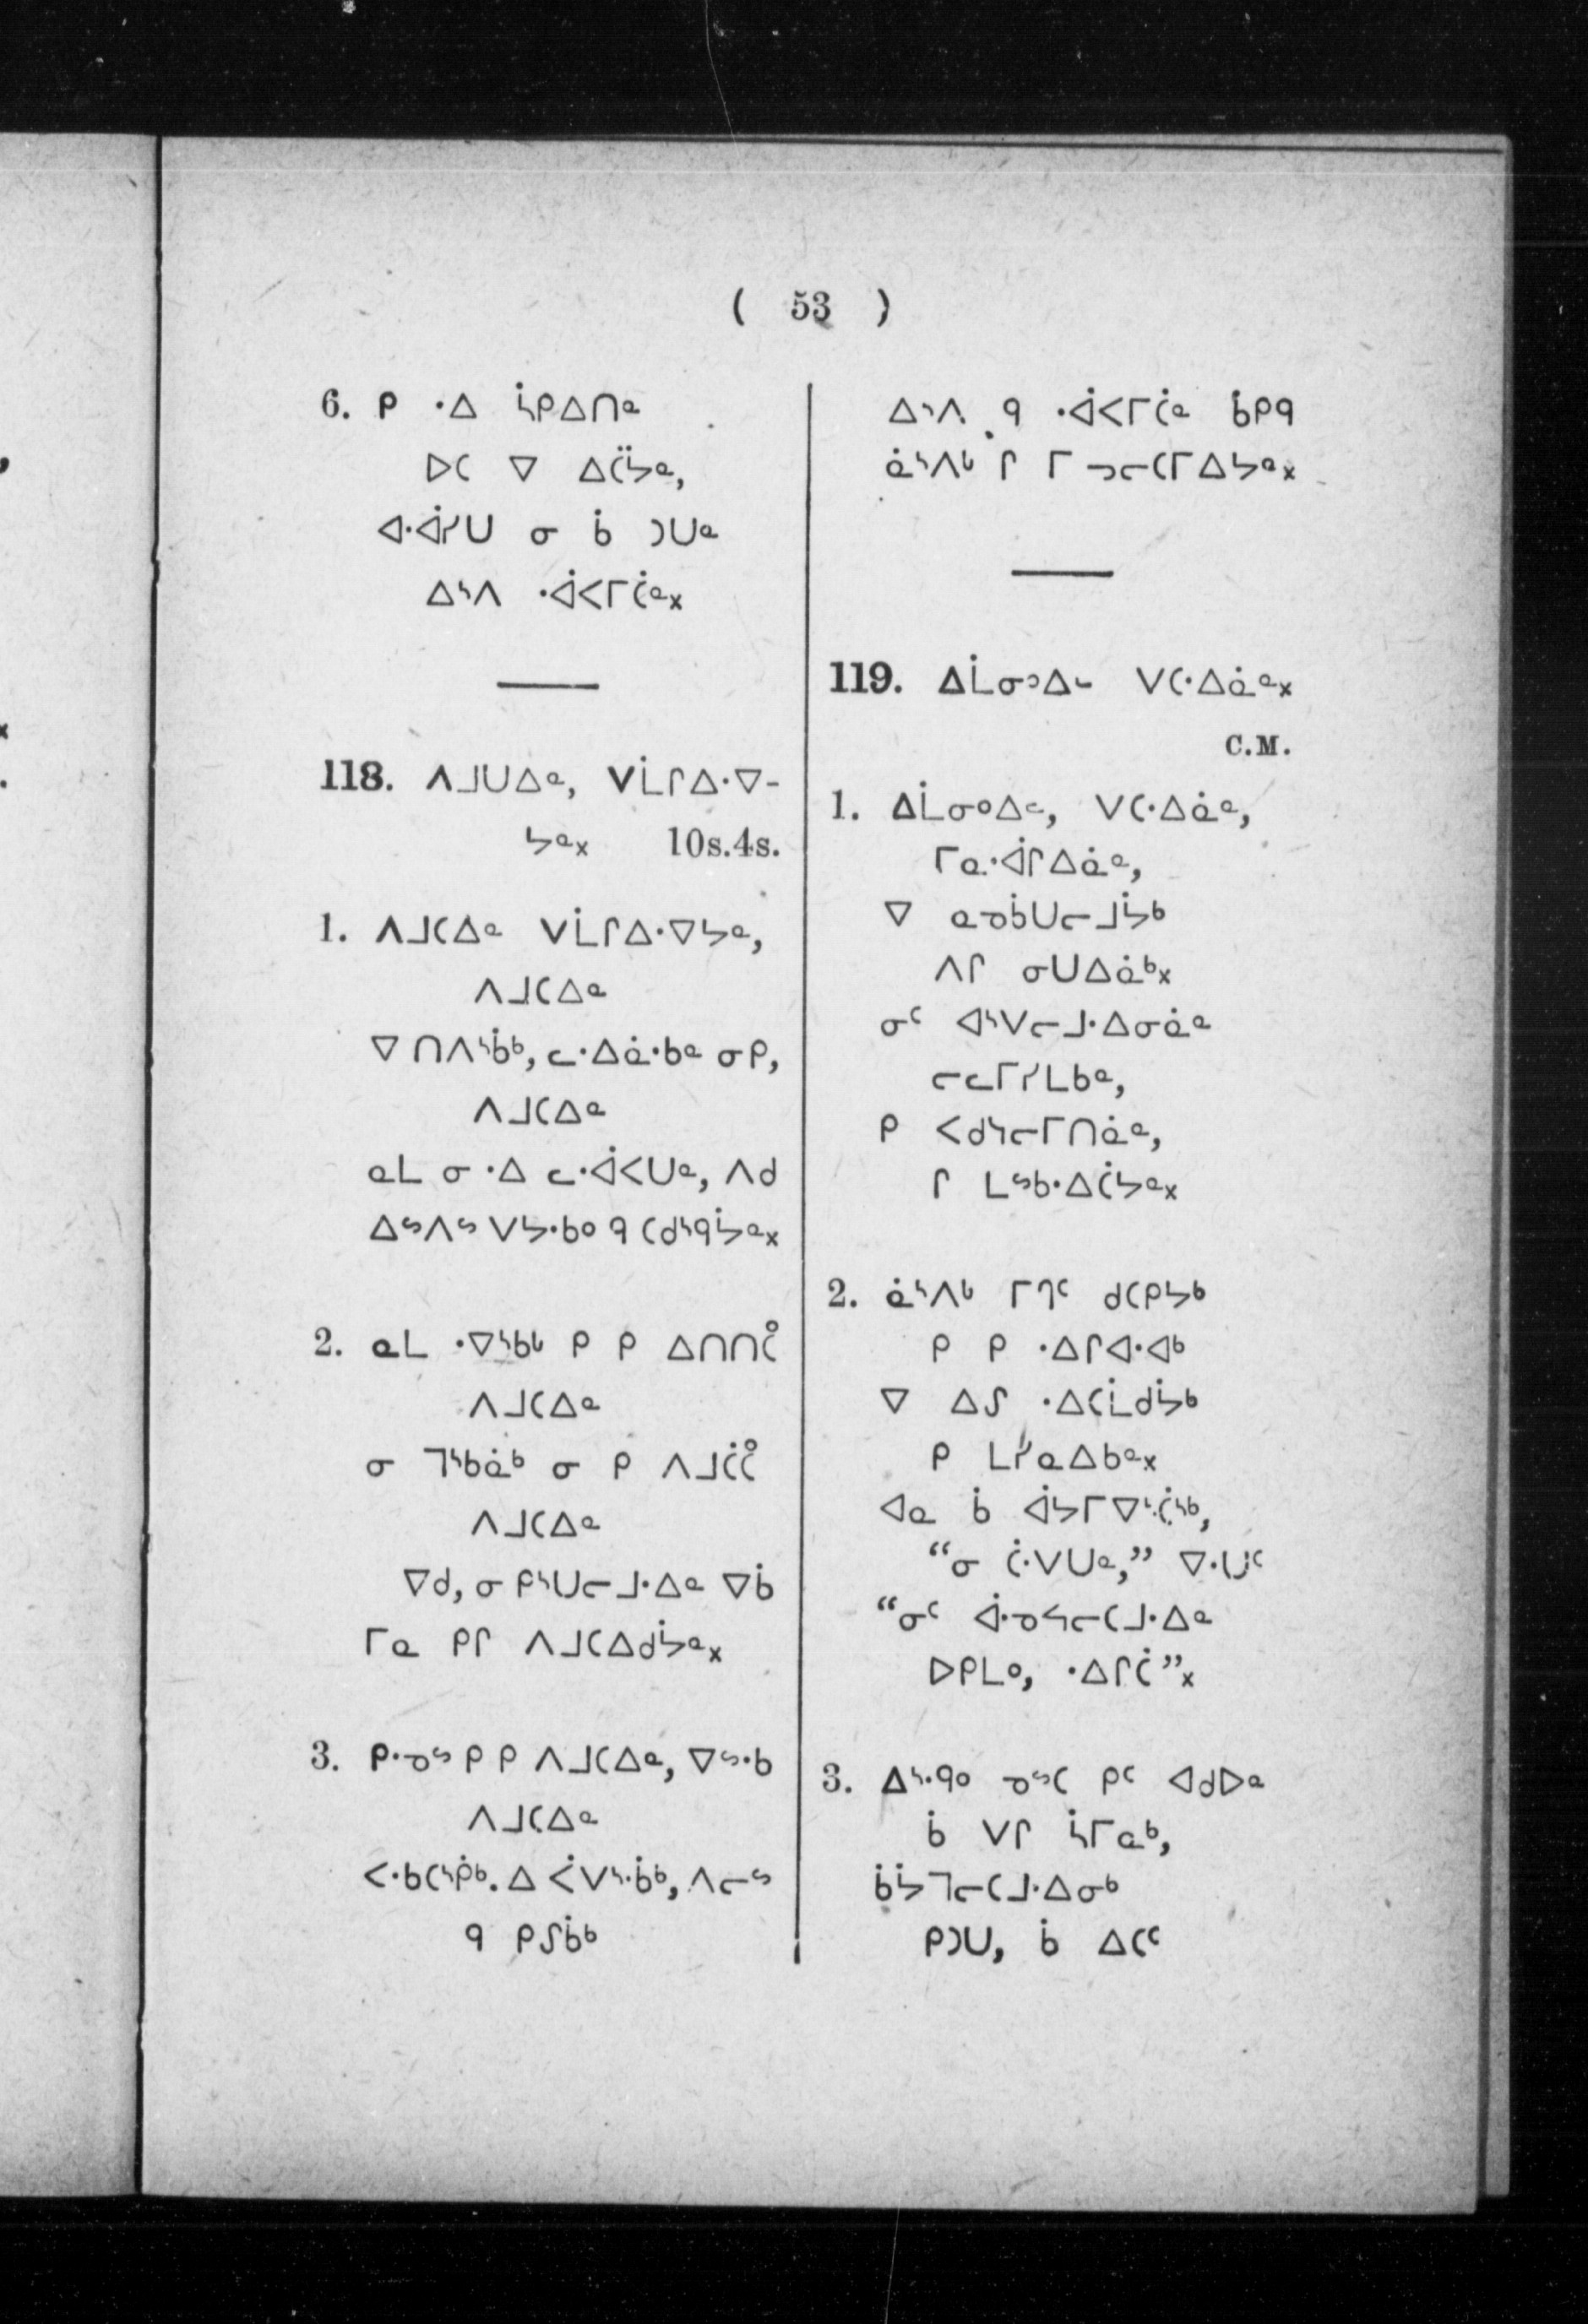 ( 53 )
6. ᑭ ᐧᐃ ᓵᑭᐃᑎᓇ
ᐅᑕ ᐁ ᐃᑖᔭᓐ,
ᐊᐧᐋᓯᑌ ᓂ ᑳ ᑐᑌᓐ
ᐃᔅᐱ ᐧᐋᐸᒥᑖᓐ᙮
118. ᐱᒧᑌᐃᓐ, ᐯᒫᒋᐃᐧᐁ-
ᔭᓐ᙮ 10s.4s.
1. ᐱᒧᑕᐃᓐ ᐯᒫᒋᐃᐧᐁᔭᓐ,
ᐱᒧᑕᐃᓐ
ᐁ ᑎᐱᔅᑳᒃ, ᓚᐧᐃᓈᐧᑲᓐ ᓂᑭ,
ᐱᒧᑕᐃᓐ
ᓇᒪ ᓂ ᐧᐃ ᓚᐧᐋᐸᑌᓐ, ᐱᑯ
ᐃᔅᐱᔅ ᐯᔭᐧᑲᐤ ᑫ ᑕᑯᔅᑫᔮᓐ᙮
2. ᓇᒪ ᐧᐁᔅᑲᒡ ᑭ ᑭ ᐃᑎᑎᑖᐤ
ᐱᒧᑕᐃᓐ
ᓂ ᒣᔅᑲᓈᒃ ᓂ ᑭ ᐱᒧᑖᑖᐤ
ᐱᒧᑕᐃᓐ
ᐁᑯ, ᓂ ᑭᔅᑌᓕᒧᐧᐃᓐ ᐁᑳ
ᒥᓇ ᑭᒋ ᐱᒧᑕᐃᑯᔮᓐ᙮
3. ᑭᐧᓄᔅ ᑭ ᑭ ᐱᒧᑕᐃᓐ, ᐁᔅᐧᑲ
ᐱᒧᑕᐃᓐ
ᐸᐧᑲᑕᔅᑮᒃ. ᐃ ᐹᐯᔅᐧᑳᒃ, ᐱᓕᔅ
ᑫ ᑭᔑᑳᒃ
ᐃᔅᐱ ᑫ ᐧᐋᐸᒥᑖᓐ ᑳᑭᑫ
ᓈᔅᐱᒡ ᒋ ᒥ ᓗᓕᑕᒥᐃᔭᓐ᙮
119. ᐃᒫᓂᐅᐃᓪ ᐯᑕᐧᐃᓈᓐ᙮
C.M.
1. ᐃᒫᓂᐤᐃᓪ, ᐯᑕᐧᐃᓈᓐ,
ᒥᓇᐧᐋᒋᐃᓈᓐ,
ᐁ ᓇᓄᑳᑌᓕᒧᔮᒃ
ᐱᒋ ᓂᑌᐃᓈᒃ᙮
ᓂᑦ ᐊᔅᐯᓕᒧᐧᐃᓂᓈᓐ
ᓕᓚᒥᓯᒪᑲᓐ,
ᑭ ᐸᑯᓭᓕᒥᑎᓈᓐ,
ᒋ ᒪᔅᑲᐧᐃᑖᔭᓐ᙮
2. ᓈᔅᐱᒡ ᒥᒉᑦ ᑯᑕᑭᔭᒃ
ᑭ ᑭ ᐧᐃᒋᐊᐧᐊᒃ
ᐁ ᐃᔑ ᐧᐃᑕᒫᑯᔮᒃ
ᑭ ᒪᓯᓇᐃᑲᓐ᙮
ᐊᓇ ᑳ ᐋᔭᒥᐁᔅᑖᔅᒃ,
“ᓂ ᑖᐧᐯᑌᓐ,” ᐁᐧᑌᑦ
“ᓂᑦ ᐋᐧᓄᓴᓕᑕᒧᐧᐃᓐ
ᐅᑭᒪᐤ, ᐧᐃᒋᑖ”᙮
3. ᐃᔅᐧᑫᐤ ᓄᔅᑕ ᑭᑦ ᐊᑯᐅᓐ
ᑳ ᐯᒋ ᓵᒥᓇᒃ,
ᑳᔮᒣᓕᑕᒧᐧᐃᓂᒃ
ᑭᑐᑌ, ᑳ ᐃᑕᑦ